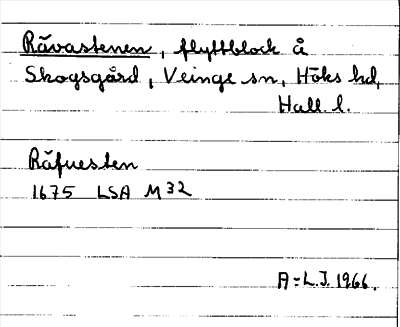 Rävastenen, flyttblock å
Skogsgård, Veinge sn, Höks hd,
Hall. l.
Räfuesten
1675 LSA M32
A=L.J. 1966.